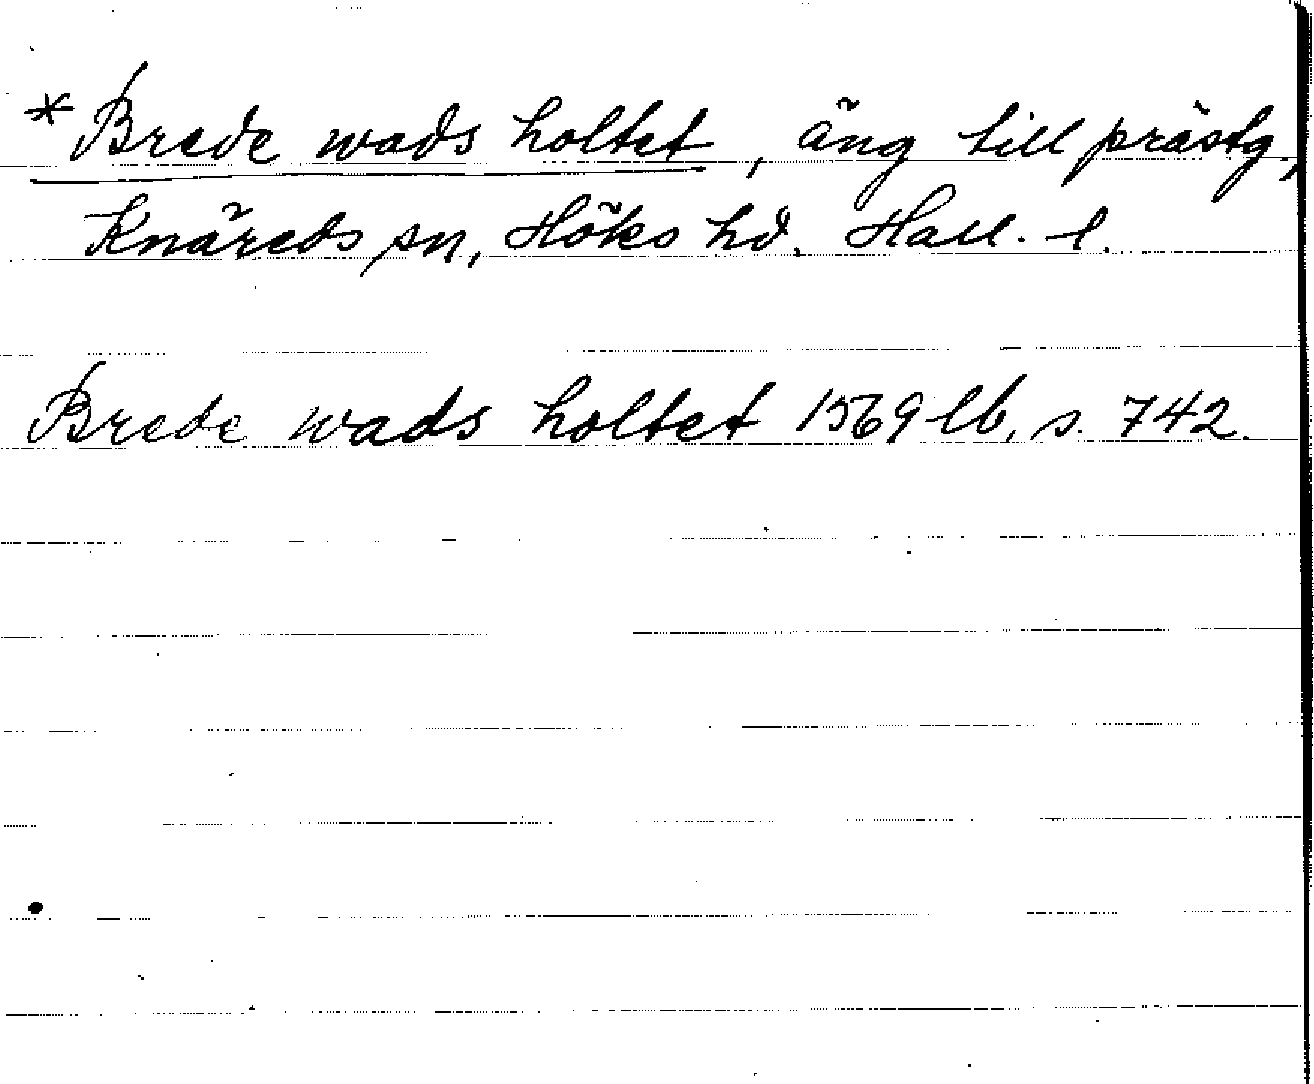 *Brede wads holtet, äng till prästg.,
Knäreds sn, Höks hd. Hall. l.
Brede wads holtet 1569 lb, s. 742.